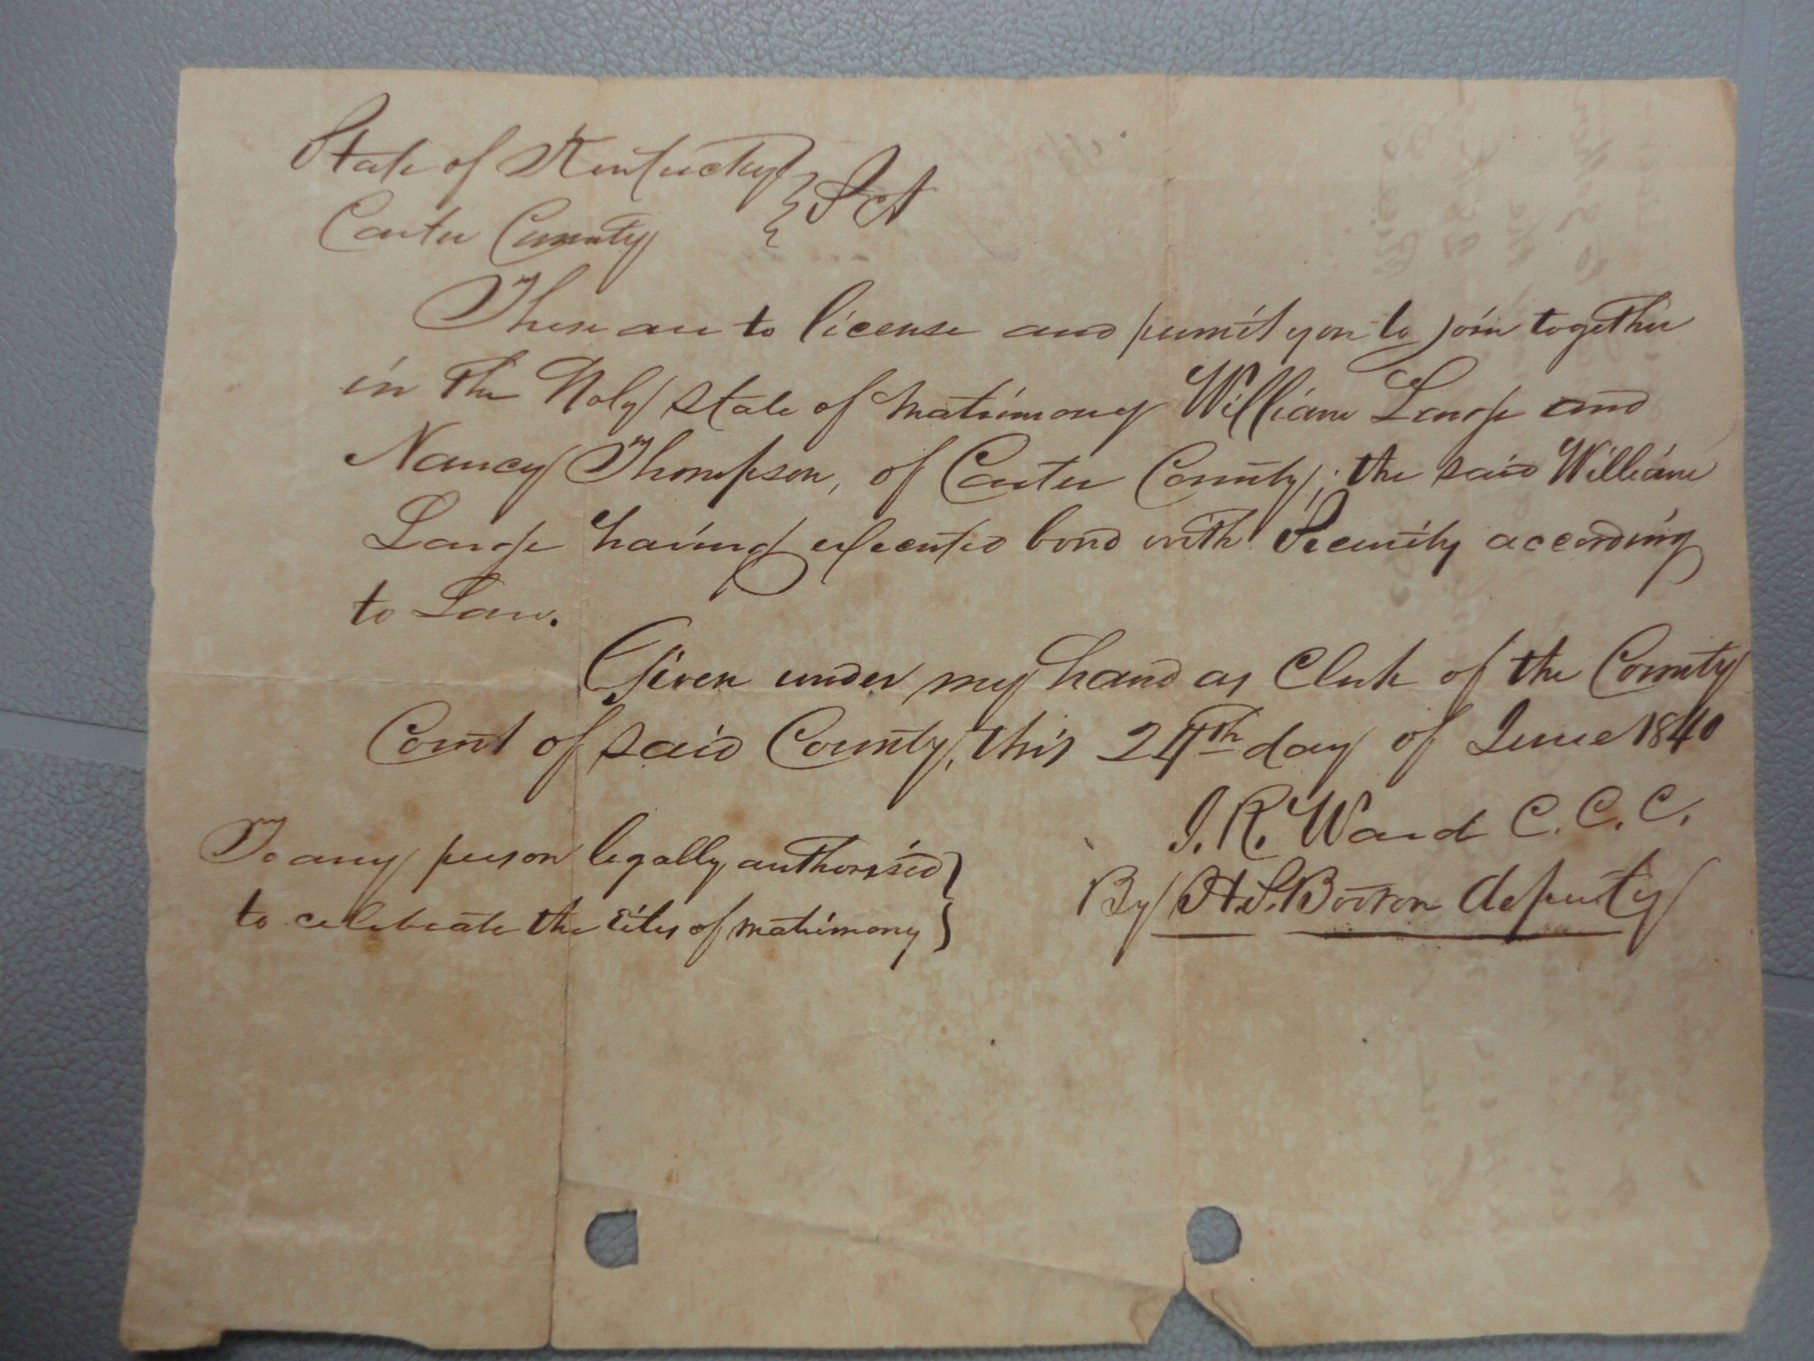 State of Kentucky } Sct
Carter County
These are to license and permit you to join together
in the Holy state of matrimony William Large and
Nancy Thompson, of Carter County; the said William
Large having executed bond with Security according
to Law.
Given under my hand as Clerk of the County
Court of said County, this 24th day of June 1840
J. R. Ward C. C. C.
By H. S. Booton deputy
To any person legally authorised }
to celebrate the rites of matrimony }